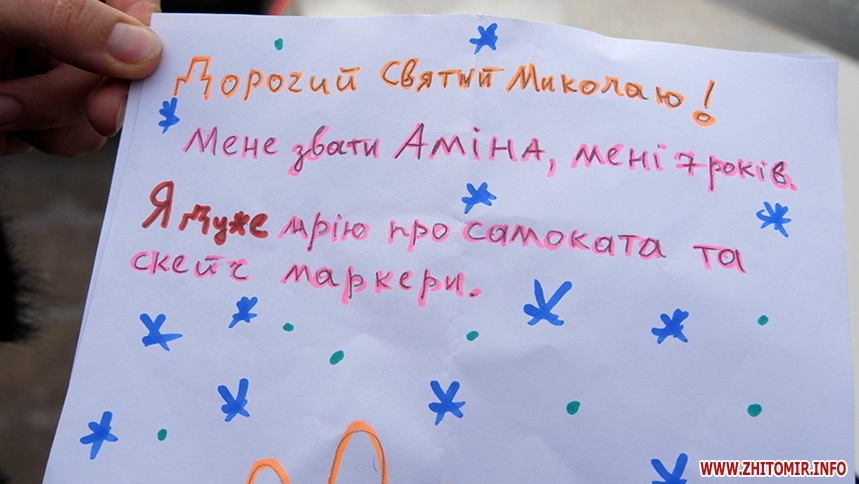 Дорогий Святий Миколаю!
Мене звати Аміна, мені 7 років.
Я дуже мрію про самоката та
скейч маркери.
WWW.ZHITOMIR.INFO